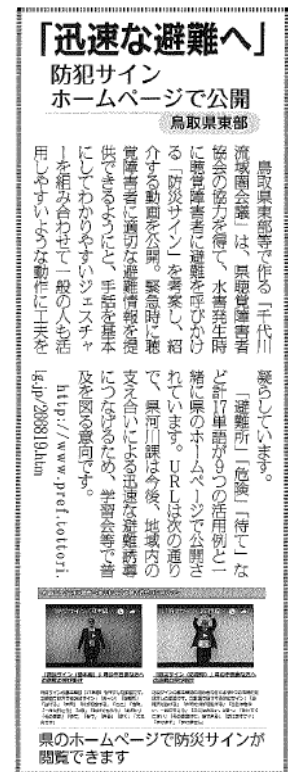 「迅速な避難へ」
防犯サイン
ホームページで公開
鳥取県東部
鳥取県東部等で作る「千代川
流域圏会議」は、県聴覚障害者
協会の協力を得て、水害発生時
に聴覚障害者に避難を呼びかけ
る「防災サイン」を考案し、紹
介する動画を公開。緊急時に聴
覚障害者に適切な避難情報を提
供できるようにと、手話を基本
にしてわかりやすいジェスチャ
ーを組み合わせて一般の人も活
用しやすいような動作に工夫を
凝らしています。
「避難所」「危険」「待て」な
ど計17単語が9つの活用例と一
緒に県のホームページで公開さ
れています。URLは次の通り
で、県河川課は今後、地域内の
支え合いによる迅速な避難誘導
につなげるため、学習会等で普
及を図る意向です。
http://www.pref.tottori.
lg.jp/266819.htm
県のホームページで防災サインが
閲覧できます